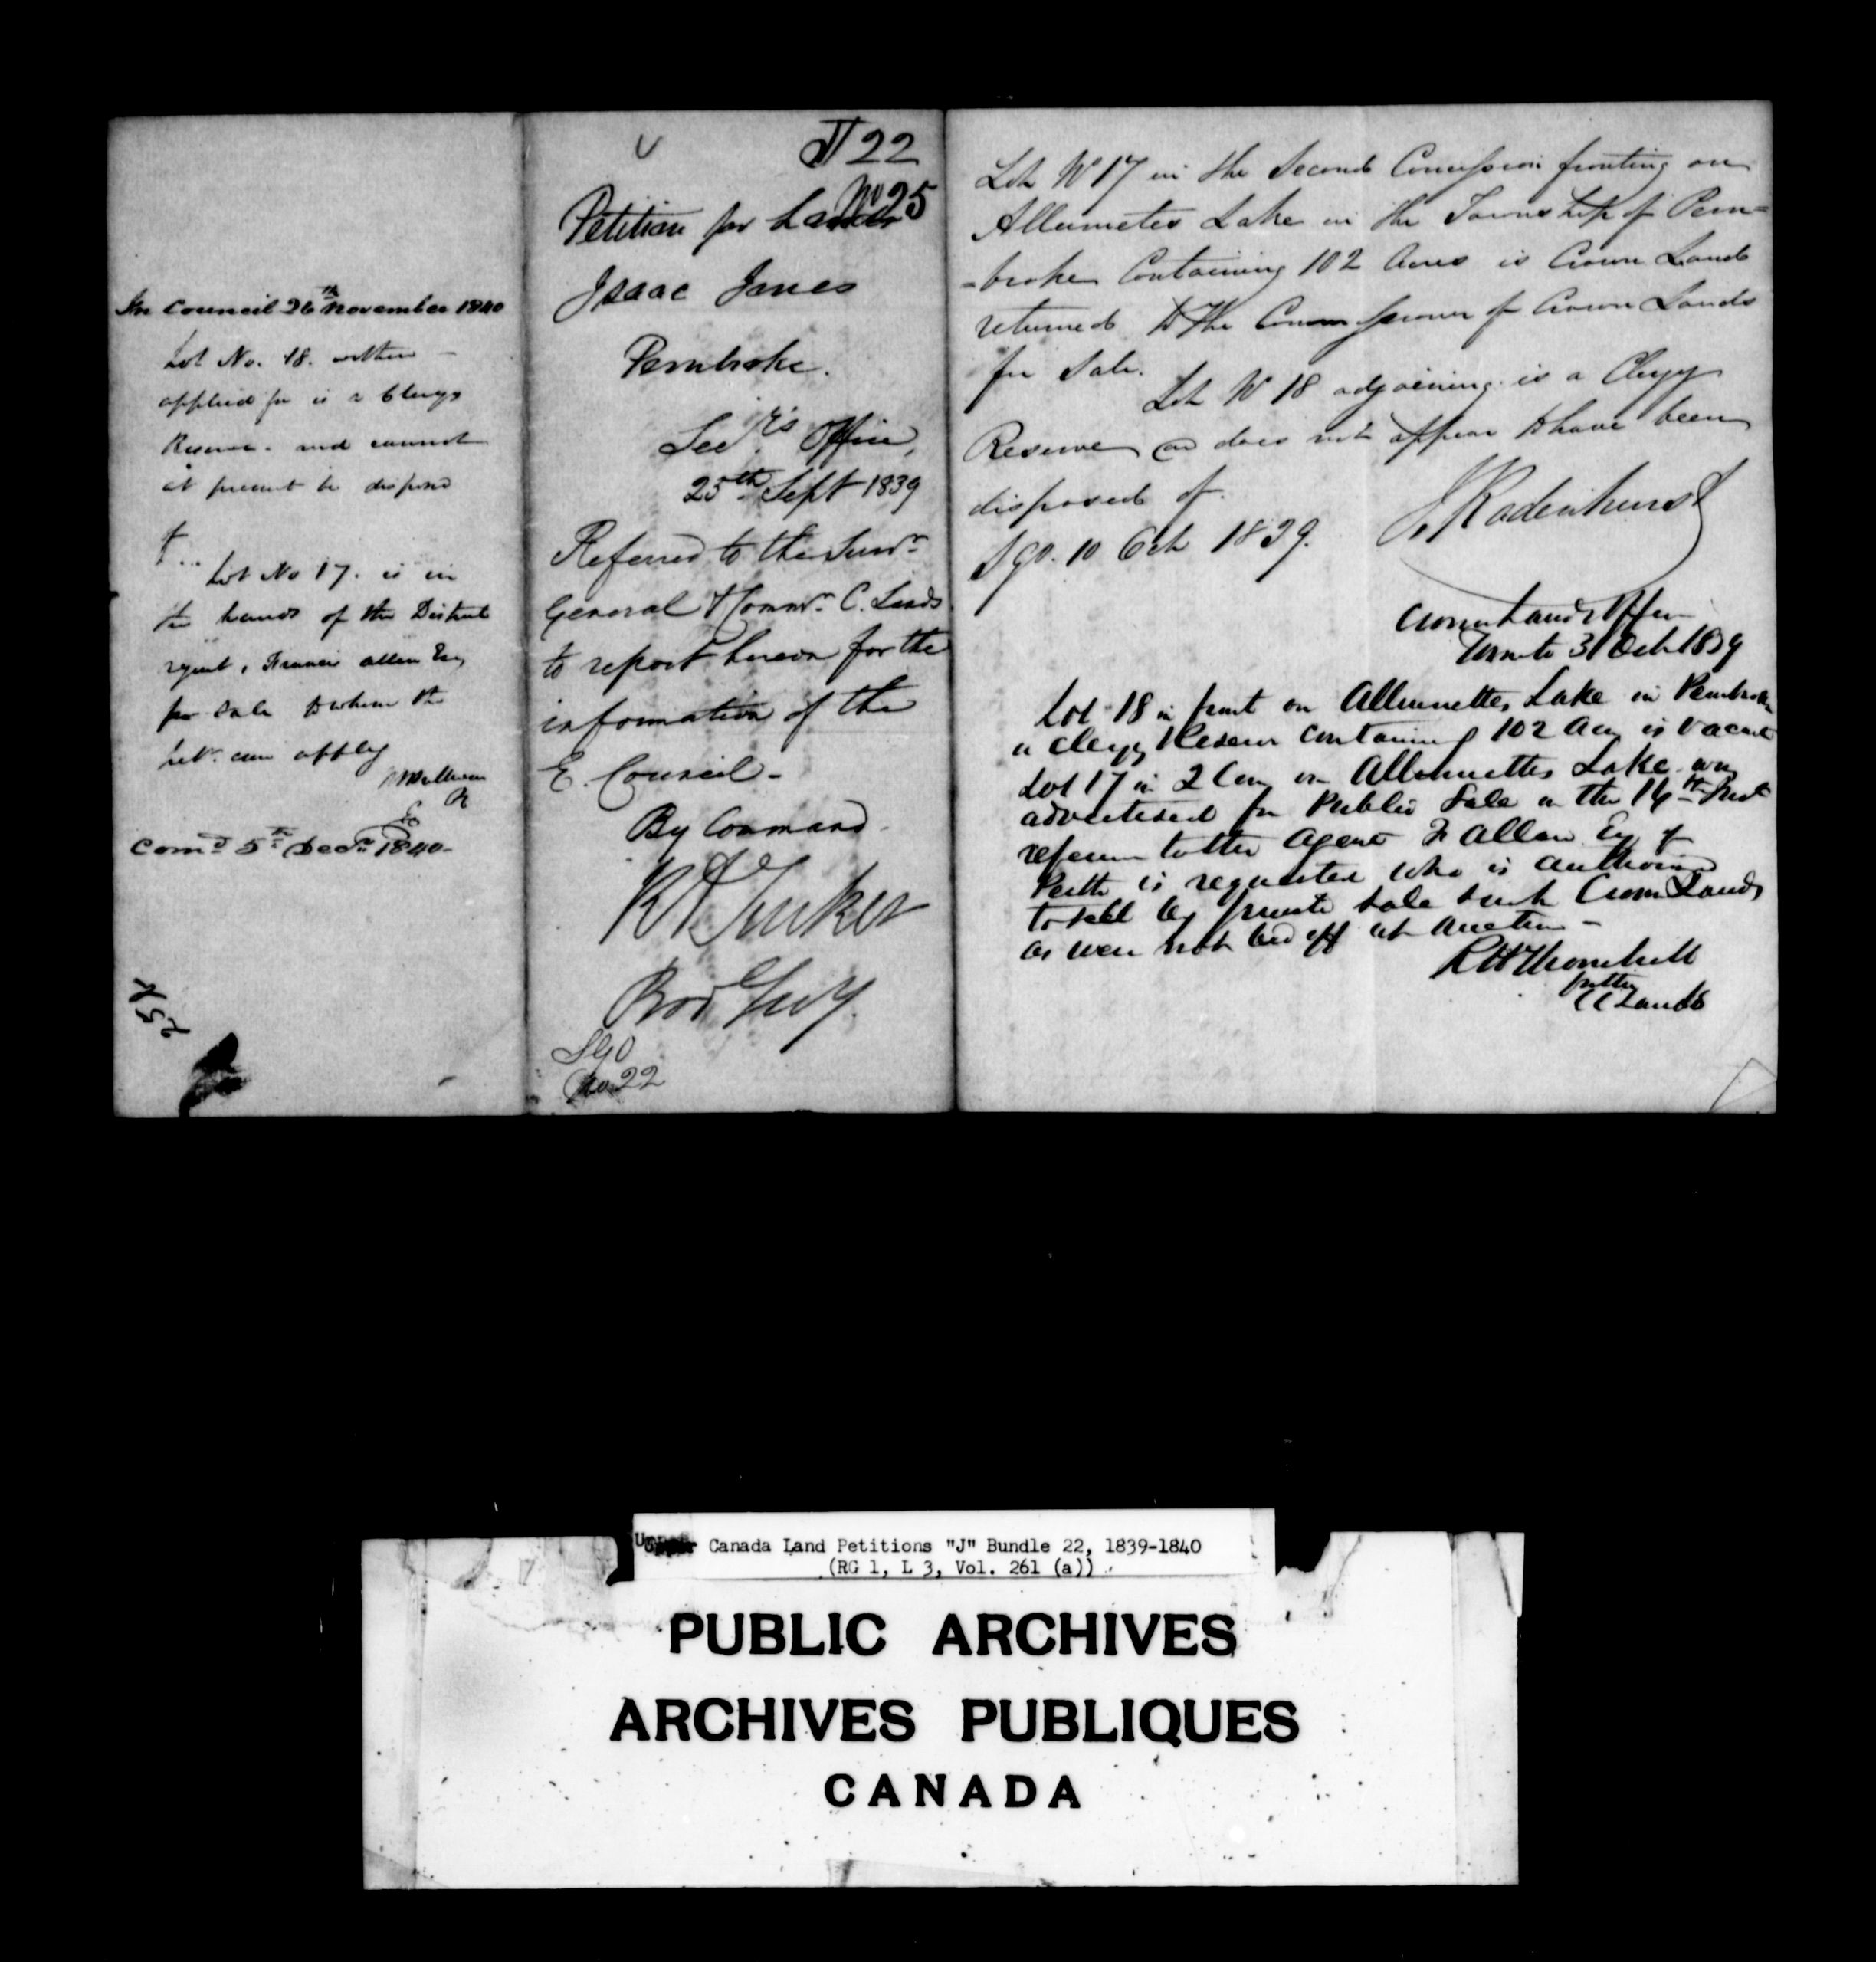 In Council 26th November 1840
Lot No. 18. within
applied for is a Clergy
Reserve. and cannot
at present be disposed
of...
Lot No 17. is in
the hands of the District
agent, Francis Allan Esq
for sale to whom the
Petr. can apply
Comd 5th Decr 1840-
J 22
No 25
Petition for Lands
Isaac Jones
Pembroke.
Secry's Office,
25th Sept 1839
Referred to the Survr
General & Commr. C. Lands
to report hereon for the
information of the
E. Council-
By Command.
R A Tucker
Prov Secy.
SGO
No 22
Lot No 17 in the Second Concession fronting on
Allumetes Lake in the Township of Pem=
=broke Containing 102 Acres is Crown Land
returned to the Commissioner of Crown Lands
for Sale.
Lot No 18 adjoining is a Clergy
Reserve and does not appear to have been
disposed of.
SGO. 10 Oct 1839.
J. Radenhurst
Crown Lands Office
Toronto 31 Oct 1839
Lot 18 in front on Allumettes Lake in Pembroke
a Clergy Reserve containing 102 Acres is vacant
Lot 17 in 2 Con on Allumettes Lake was
advertised for Public Sale on the 14th Inst
reference to the Agent F Allan Esq of
Perth is requested who is authorised
to sell by private sale such Crown Lands
as were not bid off at Auction -
R H Thornhill
for the
C C Lands
Upper Canada Land Petitions "J" Bundle 22, 1839-1840
(RG 1, L 3, Vol. 261 (a))
PUBLIC ARCHIVES
ARCHIVES PUBLIQUES
CANADA